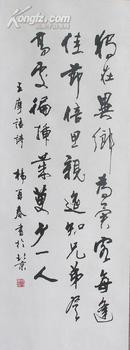 獨在異鄉為異客每逢
佳節倍思親遙知兄弟登
高處遍插茱萸少一人
王摩詰詩 楊 書於北京